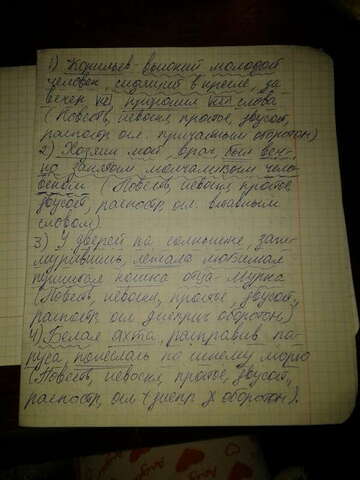 1) Корнильев - высокий молодой
человек, сидящий в кресле, за
вечер не проронил ни слова
(Повеств, невоскл, простое, двусост,
распростр осл. причастным оборотом)
2) Хозяин мой, врач, был веч-
но занятым, молчаливым чело-
веком. (Повеств, невоскл, простое
двусост, распростр, осл. вводным
словом).
3) У дверей на солнышке, зажм-
мурившись, лежала любимая
пушистая кошка отца - Мурка
(Повеств, невоскл, простое, двусост,
распостр осл деприч оборотом)
4) Белая яхта, расправив па-
руса понеслась по синему морю
(Повеств, невоскл, простое, двусост,,
распостр, осл (деепр) оборотом).